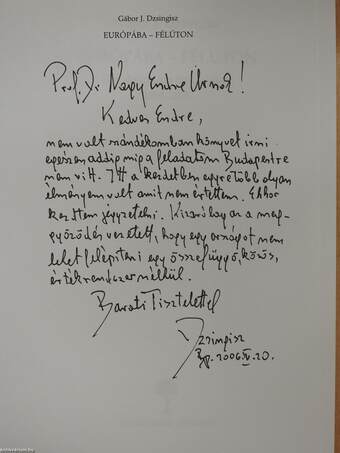 Gábor J. Dzsingisz
EURÓPÁBA – FÉLÚTON
Prof. Dr. Nagy Endre Úrnak!
Kedves Endre,
nem volt szándékomban könyvet írni
egészen addig míg a feladatom Budapestre
nem vitt. Itt a kezdetben egyre több olyan
élményem volt amit nem értettem. Ekkor
kezdtem jegyzetelni. Kizárólag az a meg-
győződés vezetett, hogy egy országot nem
lehet felépíteni egy összefüggő, közös,
értékrendszer nélkül.
Baráti Tisztelettel
Dzsingisz
Bp. 2006. IV. 20.